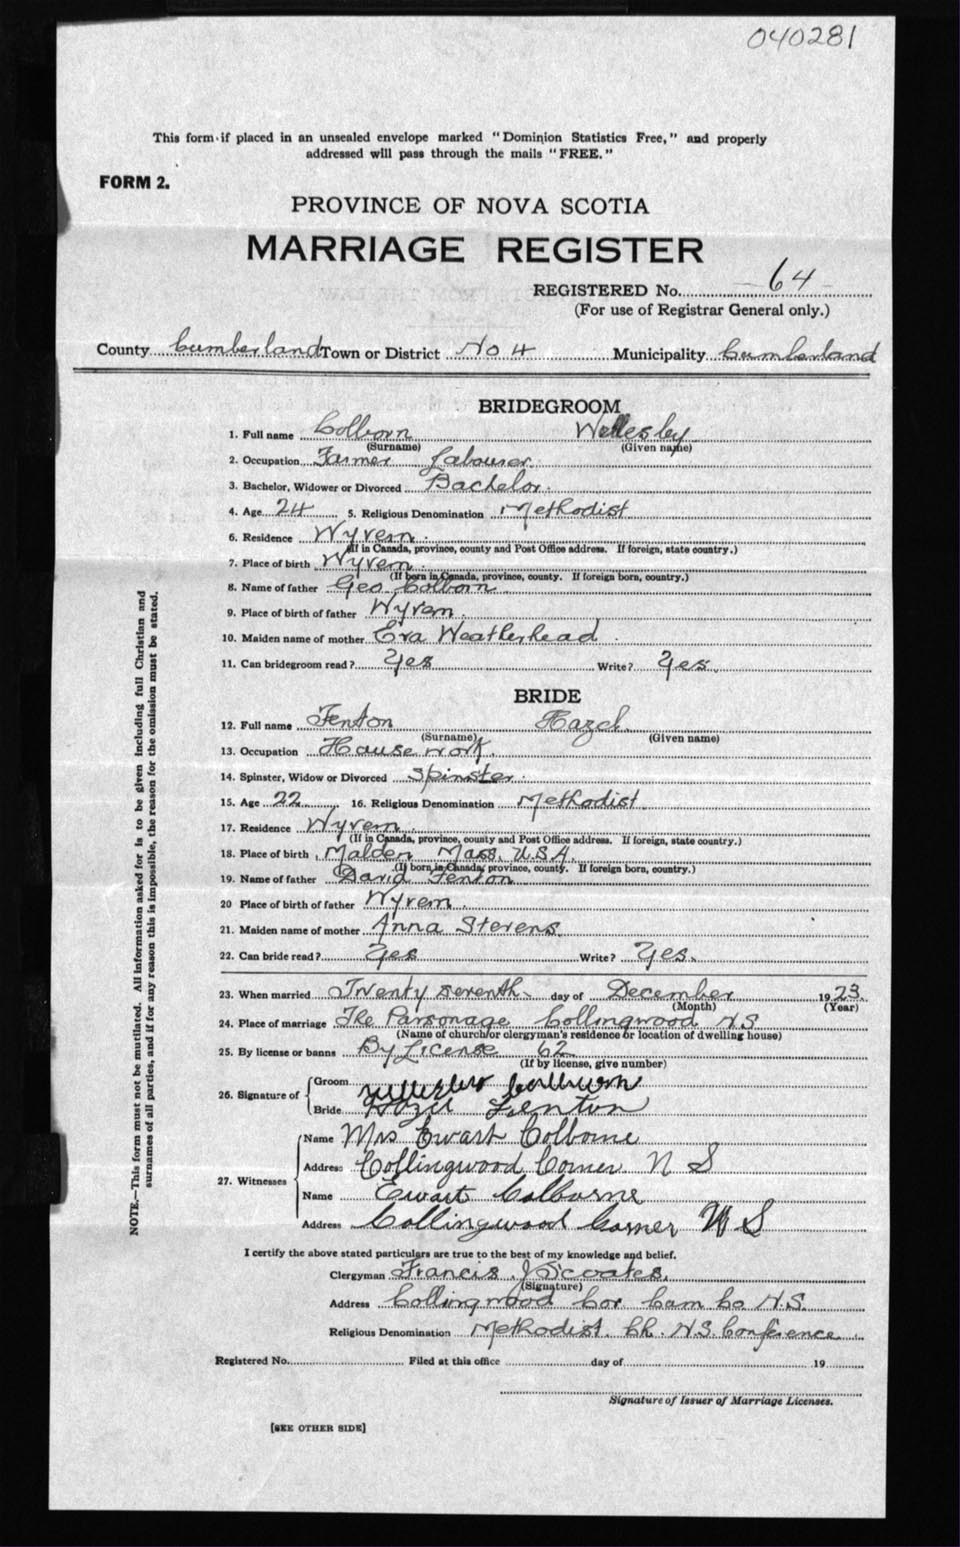 040281
This form if placed in an unsealed envelope marked "Dominion Statistics Free," and properly
addressed will pass through the mails "FREE."
FORM 2.
PROVINCE OF NOVA SCOTIA
MARRIAGE REGISTER
REGISTERED No. 64
(For use of Registrar General only.)
County Cumberland Town or District No 4 Municipality Cumberland
BRIDEGROOM
1. Full name Colborn Wellesley
(Surname) (Given name)
2. Occupation Farmer Labourer
3. Bachelor, Widower or Divorced Bachelor.
4. Age 24 5. Religious Denomination Methodist
6. Residence Wyvern.
(If in Canada, province, county and Post Office address. If foreign, state country.)
7. Place of birth Wyvern.
(If born in Canada, province, county. If foreign born, country.)
8. Name of father Geo Colborn
9. Place of birth of father Wyvern.
10. Maiden name of mother Eva Weatherhead.
11. Can bridegroom read? Yes Write? Yes.
BRIDE
12. Full name Fenton Hazel.
(Surname) (Given name)
13. Occupation House work.
14. Spinster, Widow or Divorced Spinster.
15. Age 22 16. Religious Denomination Methodist.
17. Residence Wyvern.
(If in Canada, province, county and Post Office address. If foreign, state country.)
18. Place of birth Malden Mass. U.S.A.
(If born in Canada, province, county. If foreign born, country.)
19. Name of father David Fenton
20 Place of birth of father Wyvern.
21. Maiden name of mother Anna Stevens.
22. Can bride read? Yes Write? Yes.
23. When married Twenty seventh day of December 1923.
(Month) (Year)
24. Place of marriage The Parsonage Collingwood N.S.
(Name of church or clergyman's residence or location of dwelling house)
25. By license or banns By License 62
(If by license, give number)
26. Signature of
Groom Wellesley Colborn
Bride Hazel Fenton
27. Witnesses
Name Mrs Ewart Colborne
Address Collingwood Corner N S
Name Ewart Colborne
Address Collingwood Corner N S
I certify the above stated particulars are true to the best of my knowledge and belief.
Clergyman Francis J Scoates.
(Signature)
Address Collingwood Cor Cum Co N.S.
Religious Denomination Methodist Ch. N.S. Conference
Registered No. Filed at this office day of 19
Signature of Issuer of Marriage Licenses.
[SEE OTHER SIDE]
NOTE.—This form must not be mutilated. All information asked for is to be given including full Christian and
surnames of all parties, and if for any reason this is impossible, the reason for the omission must be stated.